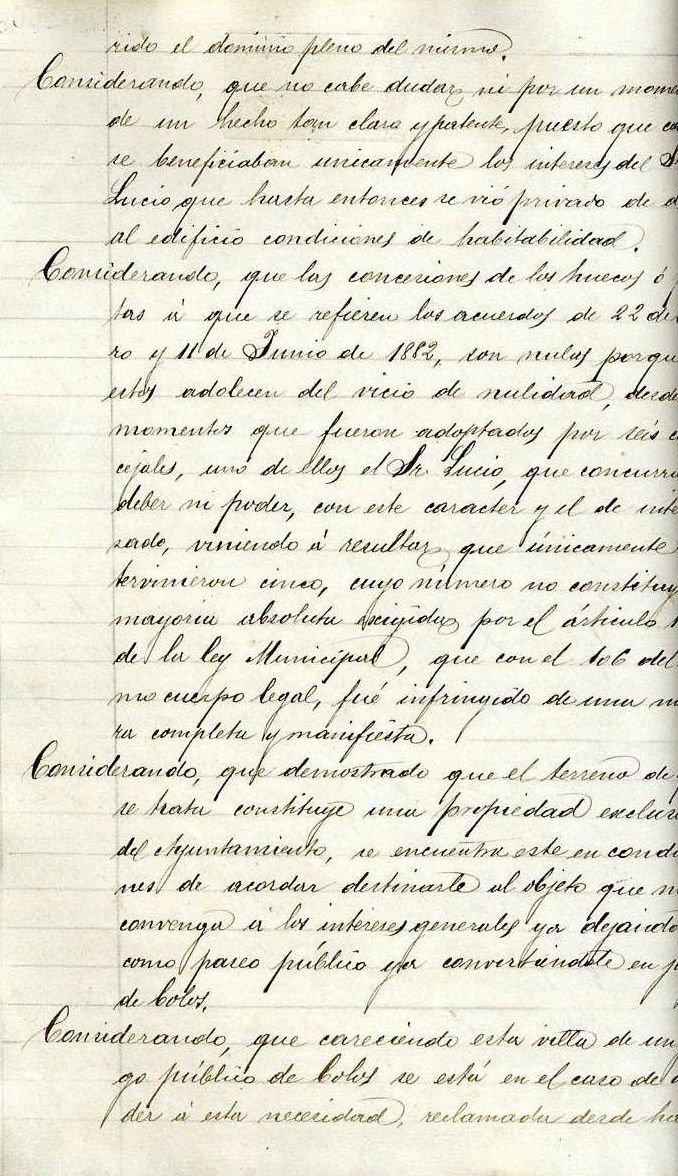 rido el dominio pleno del mismo.
Considerando, que no cabe dudar ni por un mome
de un hecho tan clara y patente, puesto que co
se beneficiaban unicamente los intereses del S
Lucio que hasta entonces se vió privado de d
al edificio condiciones de habitabilidad.
Considerando, que las concesiones de los huecos ó
tas á que se refieren los acuerdos de 22 de
ro y 11 de Junio de 1882, son nulas porque
estos adolecen del vicio de nulidad, desde
momentos que fueron adoptados por seis c
cejales, uno de ellos el Sr. Lucio, que concurri
deber ni poder, con este caracter y el de inte
sado, viniendo á resultar que únicamente
tervinieron cinco, cuyo número no constituy
mayoria absoluta exigida por el árticulo 1
de la ley Municipal, que con el 106 del
mo cuerpo legal, fué infringido de una m
ra completa y manifiesta.
Considerando, que demostrado que el terreno de
se trata constituye una propiedad exclus
del Ayuntamiento, se encuentra este en condi
nes de acordar destinarle al objeto que m
convenga á los intereses generales ya dejando
como paseo público ya convertiendole en j
de bolos.
Considerando, que careciendo esta villa de un
go público de bolos se está en el caso de
der á esta necesidad, reclamada desde ha